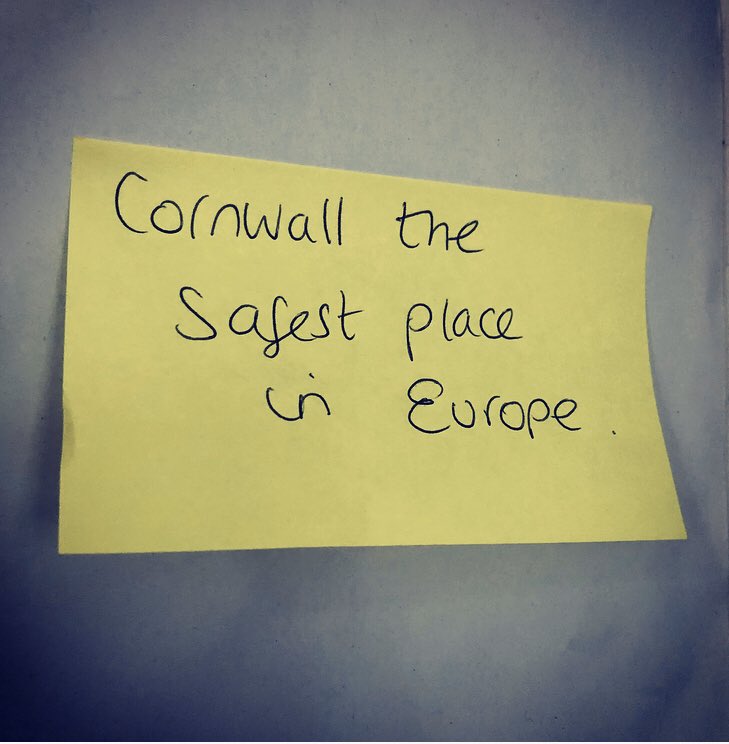 Cornwall the
Safest place
in Europe.